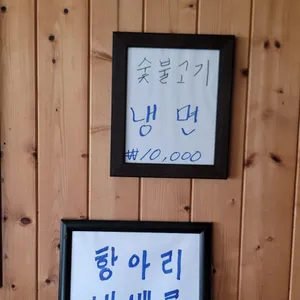 숯불고기
냉면
₩10,000
항아리